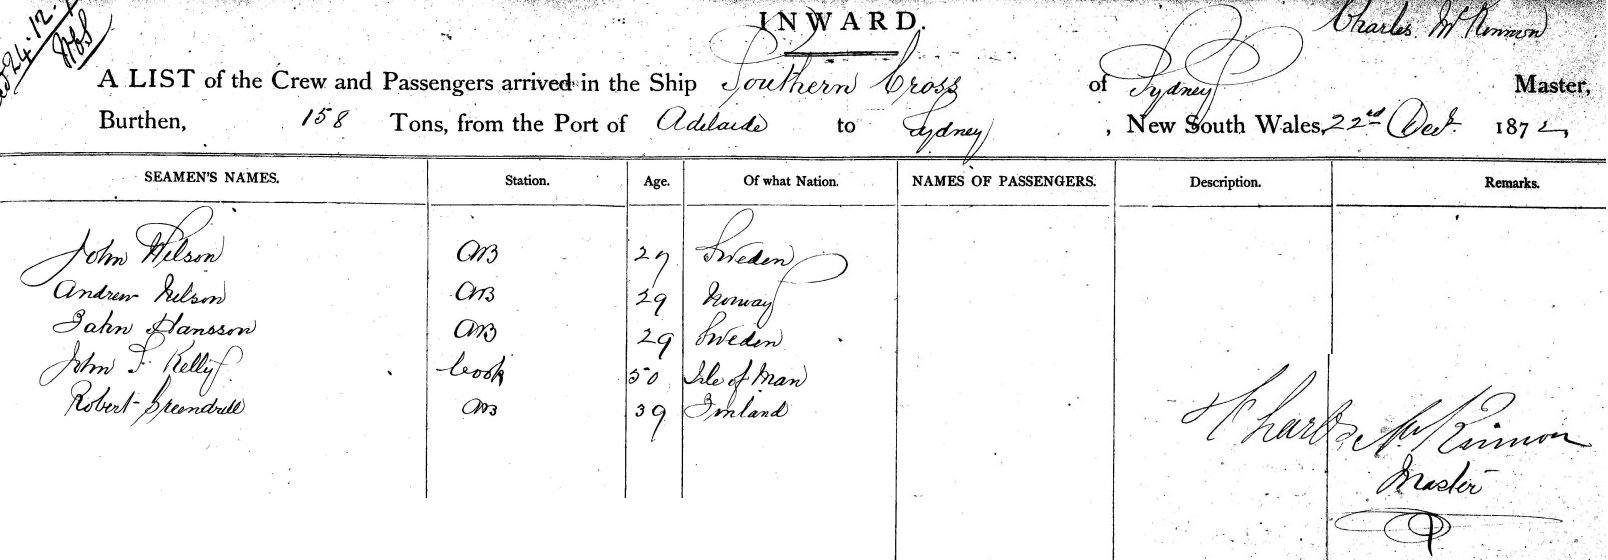 INWARD.
Charles McKinnon
24.12.
A LIST of the Crew and Passengers arrived in the Ship Southern Cross of Sydney Master,
Burthen, 158 Tons, from the Port of Adelaide to Sydney, New South Wales, 22nd Dec. 1872
SEAMEN'S NAMES. Station. Age. Of what Nation. NAMES OF PASSENGERS. Description. Remarks.
John Wilson AB 27 Sweden
Andrew Nelson AB 29 Norway
Jahn Hansson AB 29 Sweden
John F. Kelly Cook 50 Isle of Man
Robert AB 39 Finland
Charles McKinnon
Master